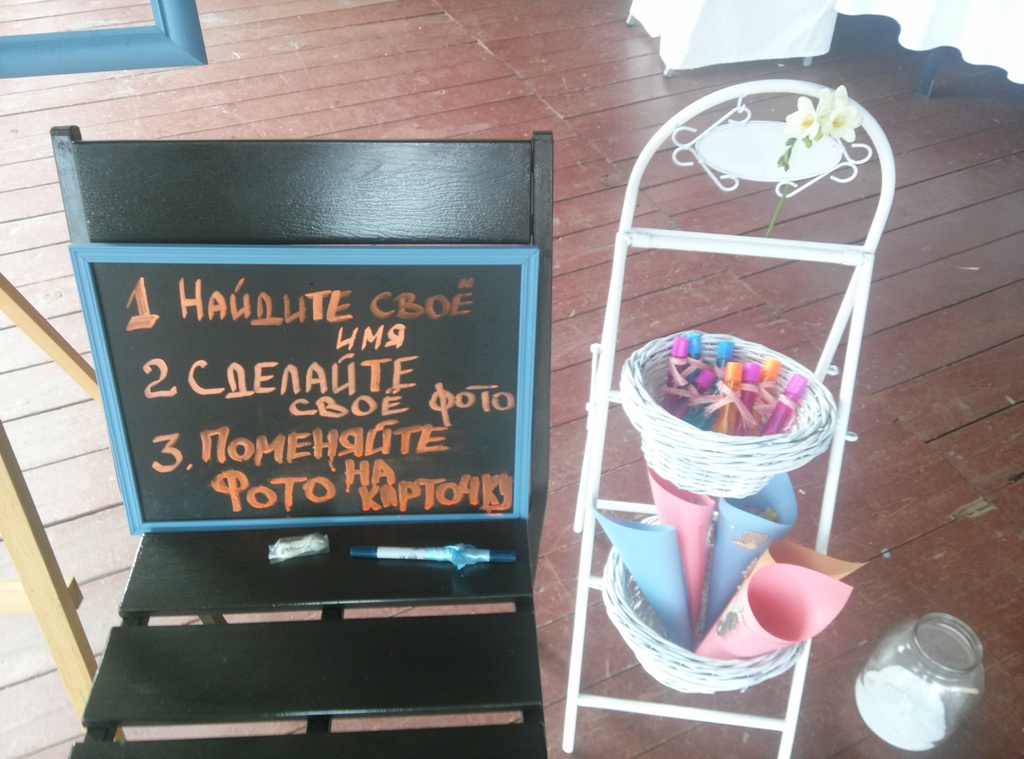 1 НАЙДИТЕ СВОЁ
ИМЯ
2 СДЕЛАЙТЕ
СВОЁ ФОТО
3. ПОМЕНЯЙТЕ
ФОТО НА
КАРТОЧКУ